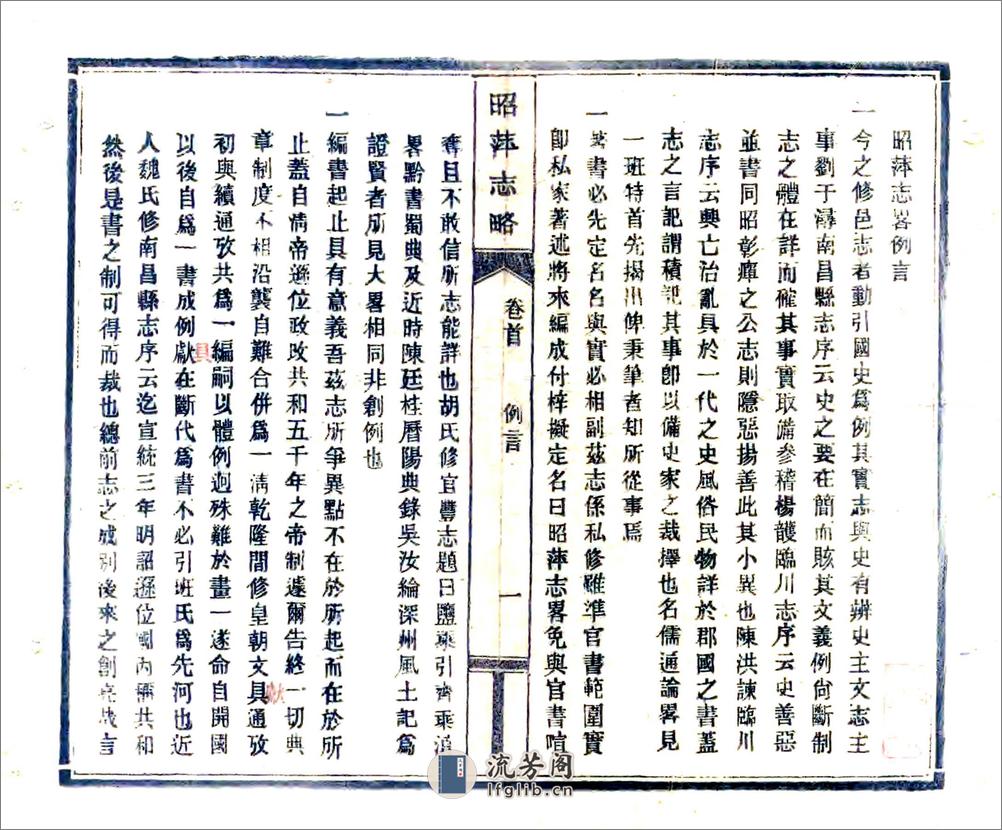 昭萍志畧例言
一今之修邑志者動引國史爲例其實志與史有辨史主文志主
事劉于潯南昌縣志序云史之要在簡而賅其文義例尙斷制
志之體在詳而確其事實取備參稽楊頀臨川志序云史善惡
並書同昭彰癉之公志則隱惡揚善此其小異也陳洪諫臨川
志序云興亡治亂具於一代之史風俗民物詳於郡國之書蓋
志之言記謂積記其事卽以備史家之裁擇也名儒通論畧見
一班特首先揭出俾秉筆者知所從事焉
一著書必先定名名與實必相副茲志係私修雖準官書範圍實
卽私家著述將來編成付梓擬定名曰昭萍志畧免與官書喧
昭萍志略
卷首
例言
一
奪且不敢信所志能詳也胡氏修官豐志題曰鹽乘引齊乘滇
畧黔書蜀典及近時陳廷桂曆陽典錄吳汝綸深州風土記爲
證賢者所見大畧相同非創例也
一編書起止具有意義吾茲志所爭異點不在於所起而在於所
止蓋自淸帝遜位政改共和五千年之帝制遽爾告終一切典
章制度不相沿襲自難合併爲一淸乾隆間修皇朝文具通攷
獻
初與續通攷共爲一編嗣以體例迥殊難於畫一遂命自開國
以後自爲一書成例獻在斷代爲書不必引班氏爲先河也近
具
人魏氏修南昌縣志序云迄宣統三年明詔遜位國內稱共和
然後是書之制可得而裁也總前志之成別後來之創旨哉言
流芳阁
lfglib.cn